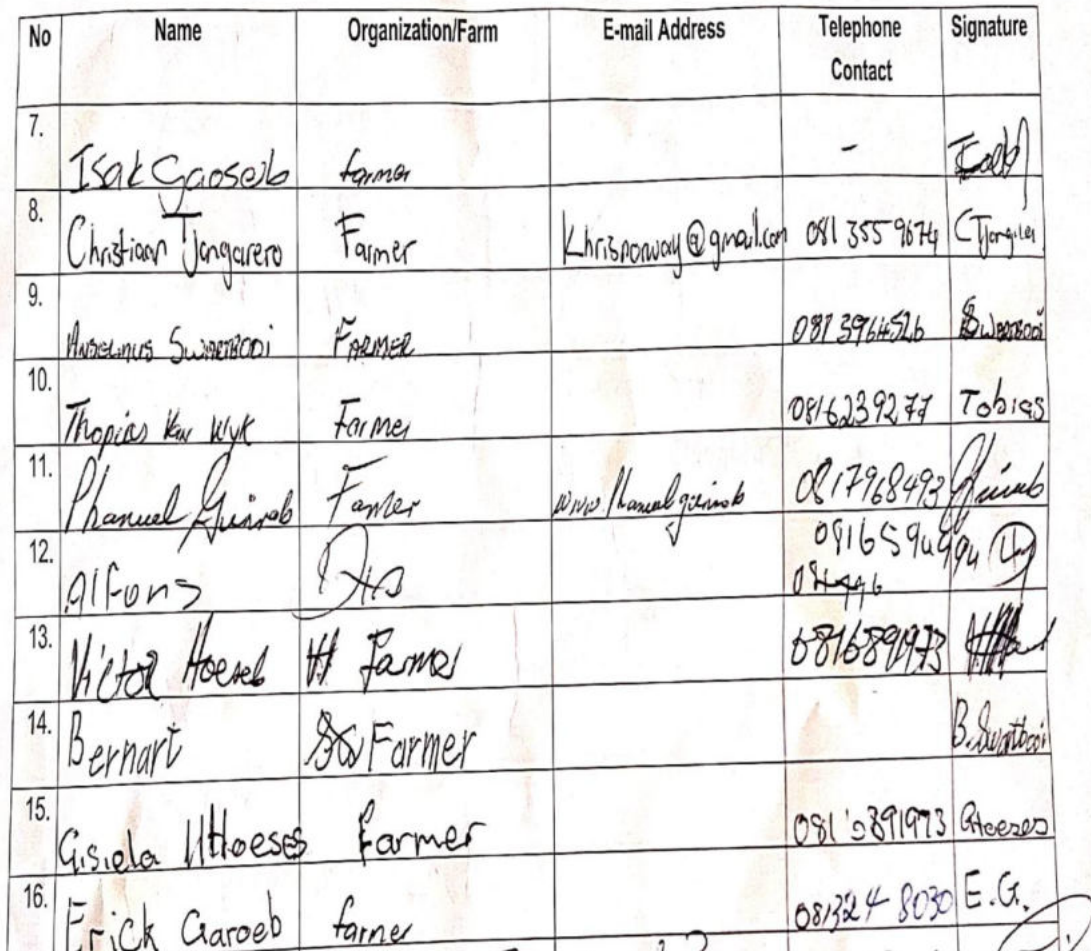 No Name Organization/Farm E-mail Address Telephone Contact Signature
7. Isak Gaoseb farmer -
8. Christiaan Tjangarero Farmer Khrisnorway@gmail.com 081 355 9674
9. Anselinus Swartbooi Farmer 081 3964526 Swartbooi
10. Thopias Van Wyk Farmer 0816239277 Tobias
11. Phanuel Guinab Farmer 0817968493
12. Alfons 0816594994
13. Victor Hoeseb Farmer 0816891973
14. Bernart Farmer B. Swartbooi
15. Gisiela Hoeses Farmer Hoeses
16. Erick Garoeb farmer 081324 8030 E.G.